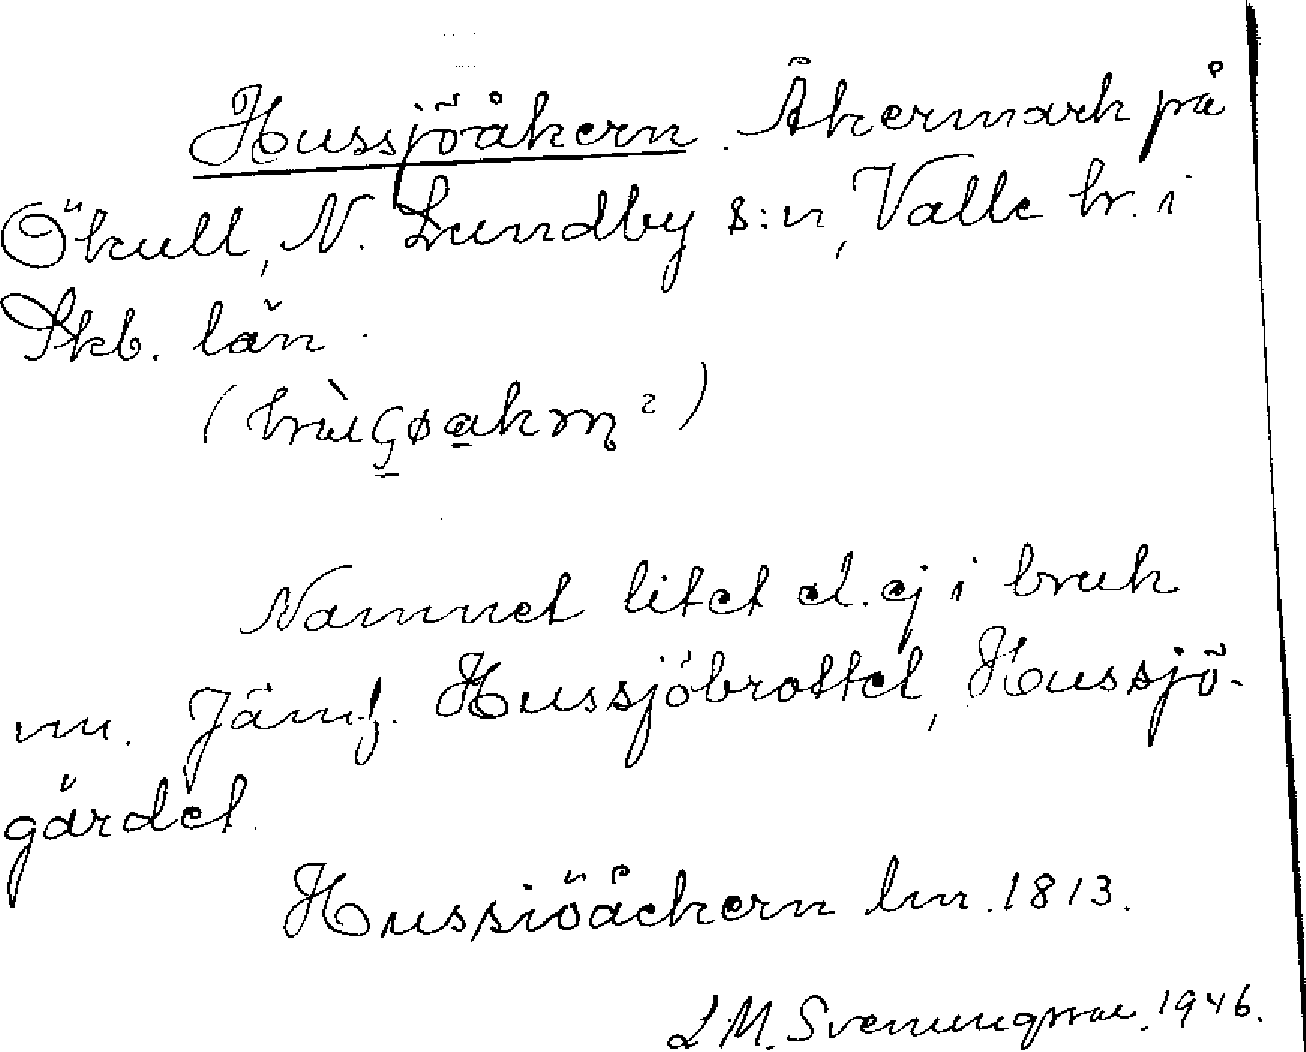 Hussjöåkern. Åkermark på
Ökull, N. Lundby s:n, Valle hr. i
Skb. län.
Namnet litet el. ej i bruk
nu. Jämf. Hussjöbrottet, Hussjö-
gärdet.
Hussiöåckern lm. 1813.
L M. Svenungsson. 1946.